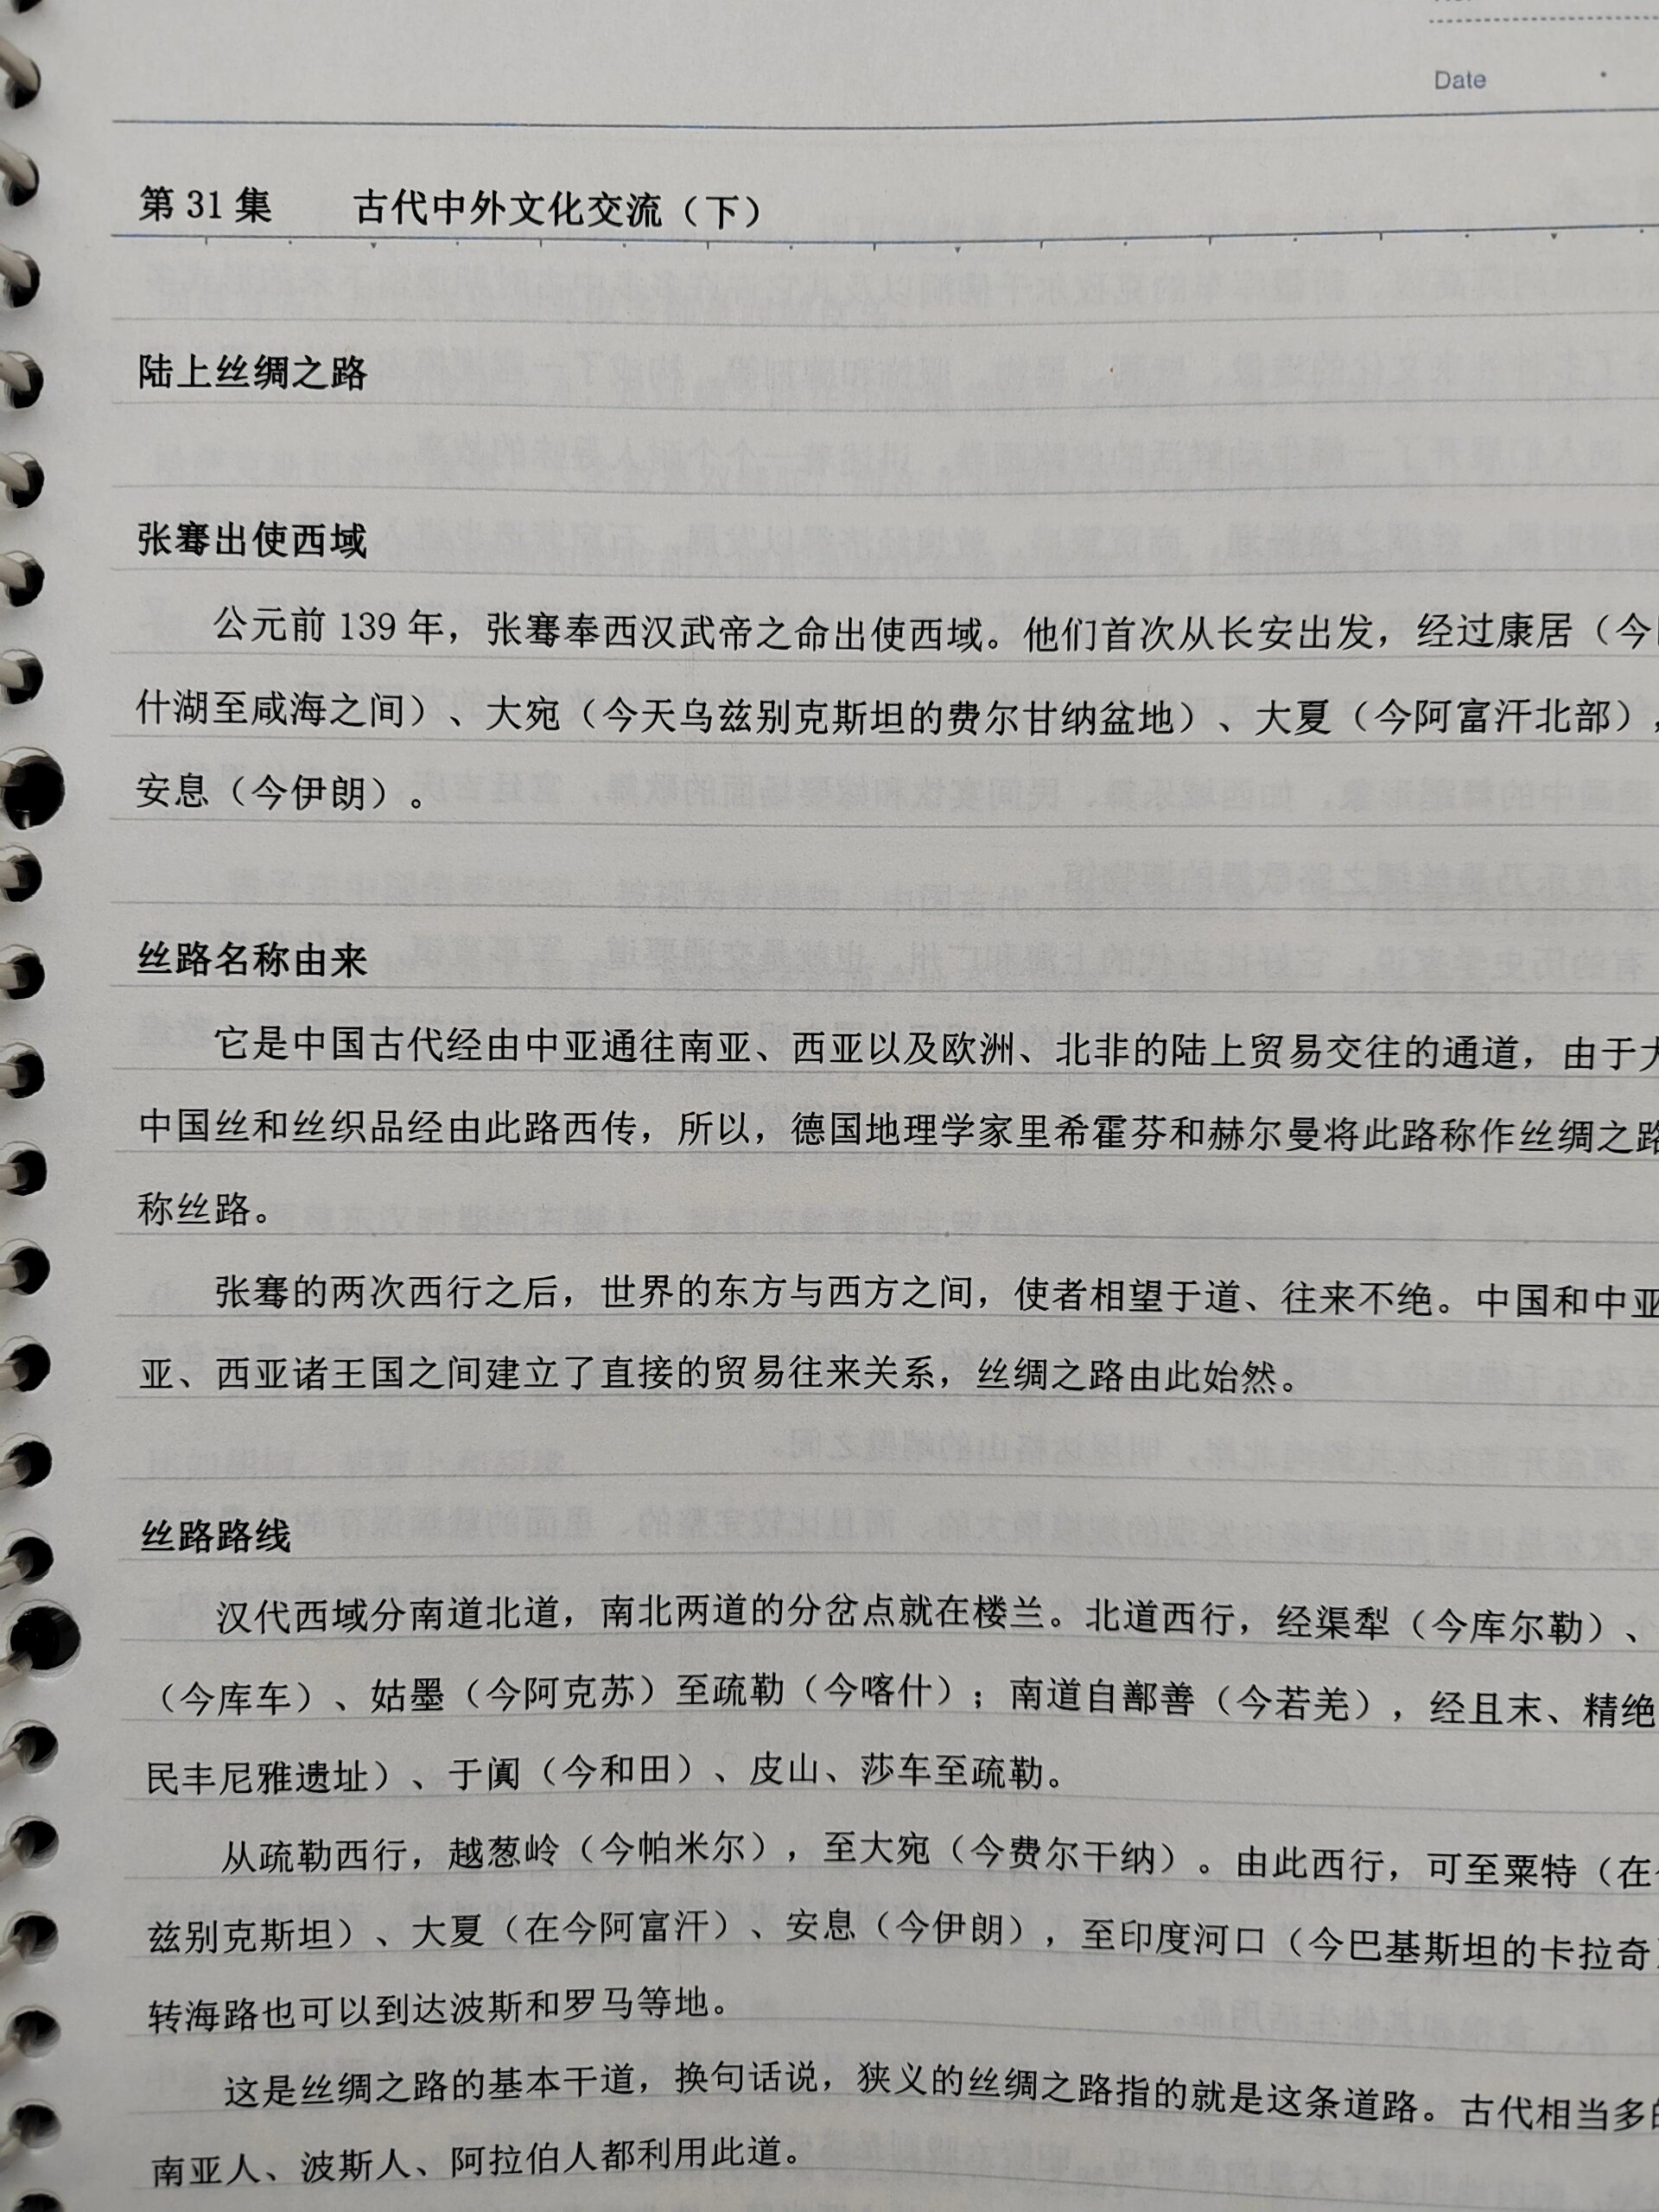 Date
第 31 集 古代中外文化交流（下）
陆上丝绸之路
张骞出使西域
公元前 139 年，张骞奉西汉武帝之命出使西域。他们首次从长安出发，经过康居（今
什湖至咸海之间）、大宛（今天乌兹别克斯坦的费尔甘纳盆地）、大夏（今阿富汗北部），
安息（今伊朗）。
丝路名称由来
它是中国古代经由中亚通往南亚、西亚以及欧洲、北非的陆上贸易交往的通道，由于大
中国丝和丝织品经由此路西传，所以，德国地理学家里希霍芬和赫尔曼将此路称作丝绸之路
称丝路。
张骞的两次西行之后，世界的东方与西方之间，使者相望于道、往来不绝。中国和中亚
亚、西亚诸王国之间建立了直接的贸易往来关系，丝绸之路由此始然。
丝路路线
汉代西域分南道北道，南北两道的分岔点就在楼兰。北道西行，经渠犁（今库尔勒）、
（今库车）、姑墨（今阿克苏）至疏勒（今喀什）；南道自鄯善（今若羌），经且末、精绝
民丰尼雅遗址）、于阗（今和田）、皮山、莎车至疏勒。
从疏勒西行，越葱岭（今帕米尔），至大宛（今费尔干纳）。由此西行，可至粟特（在
兹别克斯坦）、大夏（在今阿富汗）、安息（今伊朗），至印度河口（今巴基斯坦的卡拉奇）
转海路也可以到达波斯和罗马等地。
这是丝绸之路的基本干道，换句话说，狭义的丝绸之路指的就是这条道路。古代相当多的
南亚人、波斯人、阿拉伯人都利用此道。